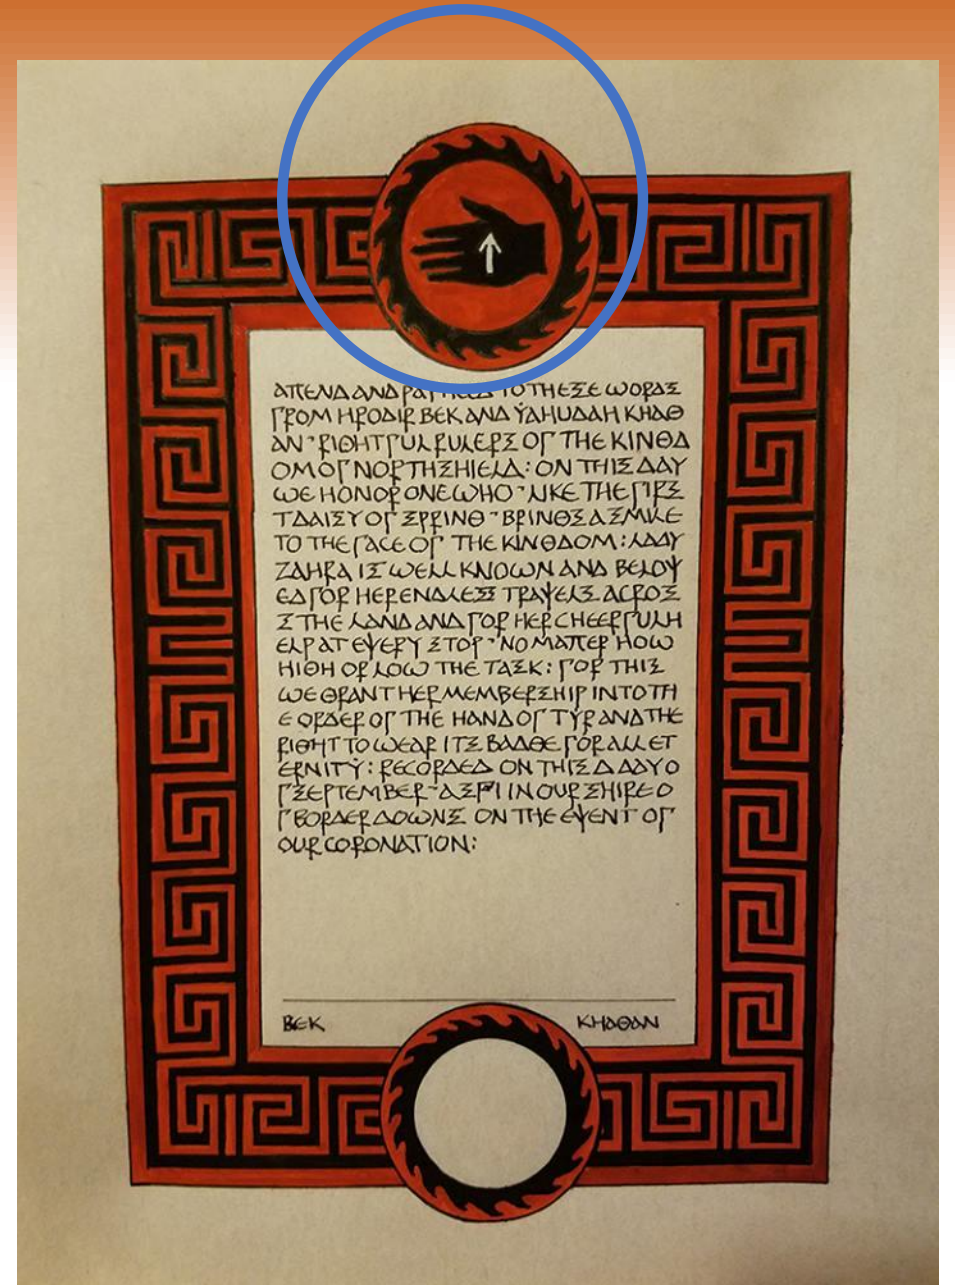 ATTEND AND TO THESE WORDS
FROM HRODIR BEK AND YAHUDAH KHAG
AN · RIGHTFUL RULERS OF THE KINGD
OM OF NORTHSHIELD : ON THIS DAY
WE HONOR ONE WHO · LIKE THE FIRS
T DAISY OF SPRING · BRINGS A SMILE
TO THE FACE OF THE KINGDOM : LADY
ZAHRA IS WELL KNOWN AND BELOV
ED FOR HER ENDLESS TRAVELS ACROS
S THE LAND AND FOR HER CHEERFUL H
ELP AT EVERY STOP · NO MATTER HOW
HIGH OR LOW THE TASK : FOR THIS
WE GRANT HER MEMBERSHIP INTO TH
E ORDER OF THE HAND OF TYR AND THE
RIGHT TO WEAR ITS BADGE FOR ALL ET
ERNITY : RECORDED ON THIS Δ DAY O
F SEPTEMBER · A S IN OUR SHIRE O
F BORDER DOWNS ON THE EVENT OF
OUR CORONATION :
BEK KHAGAN